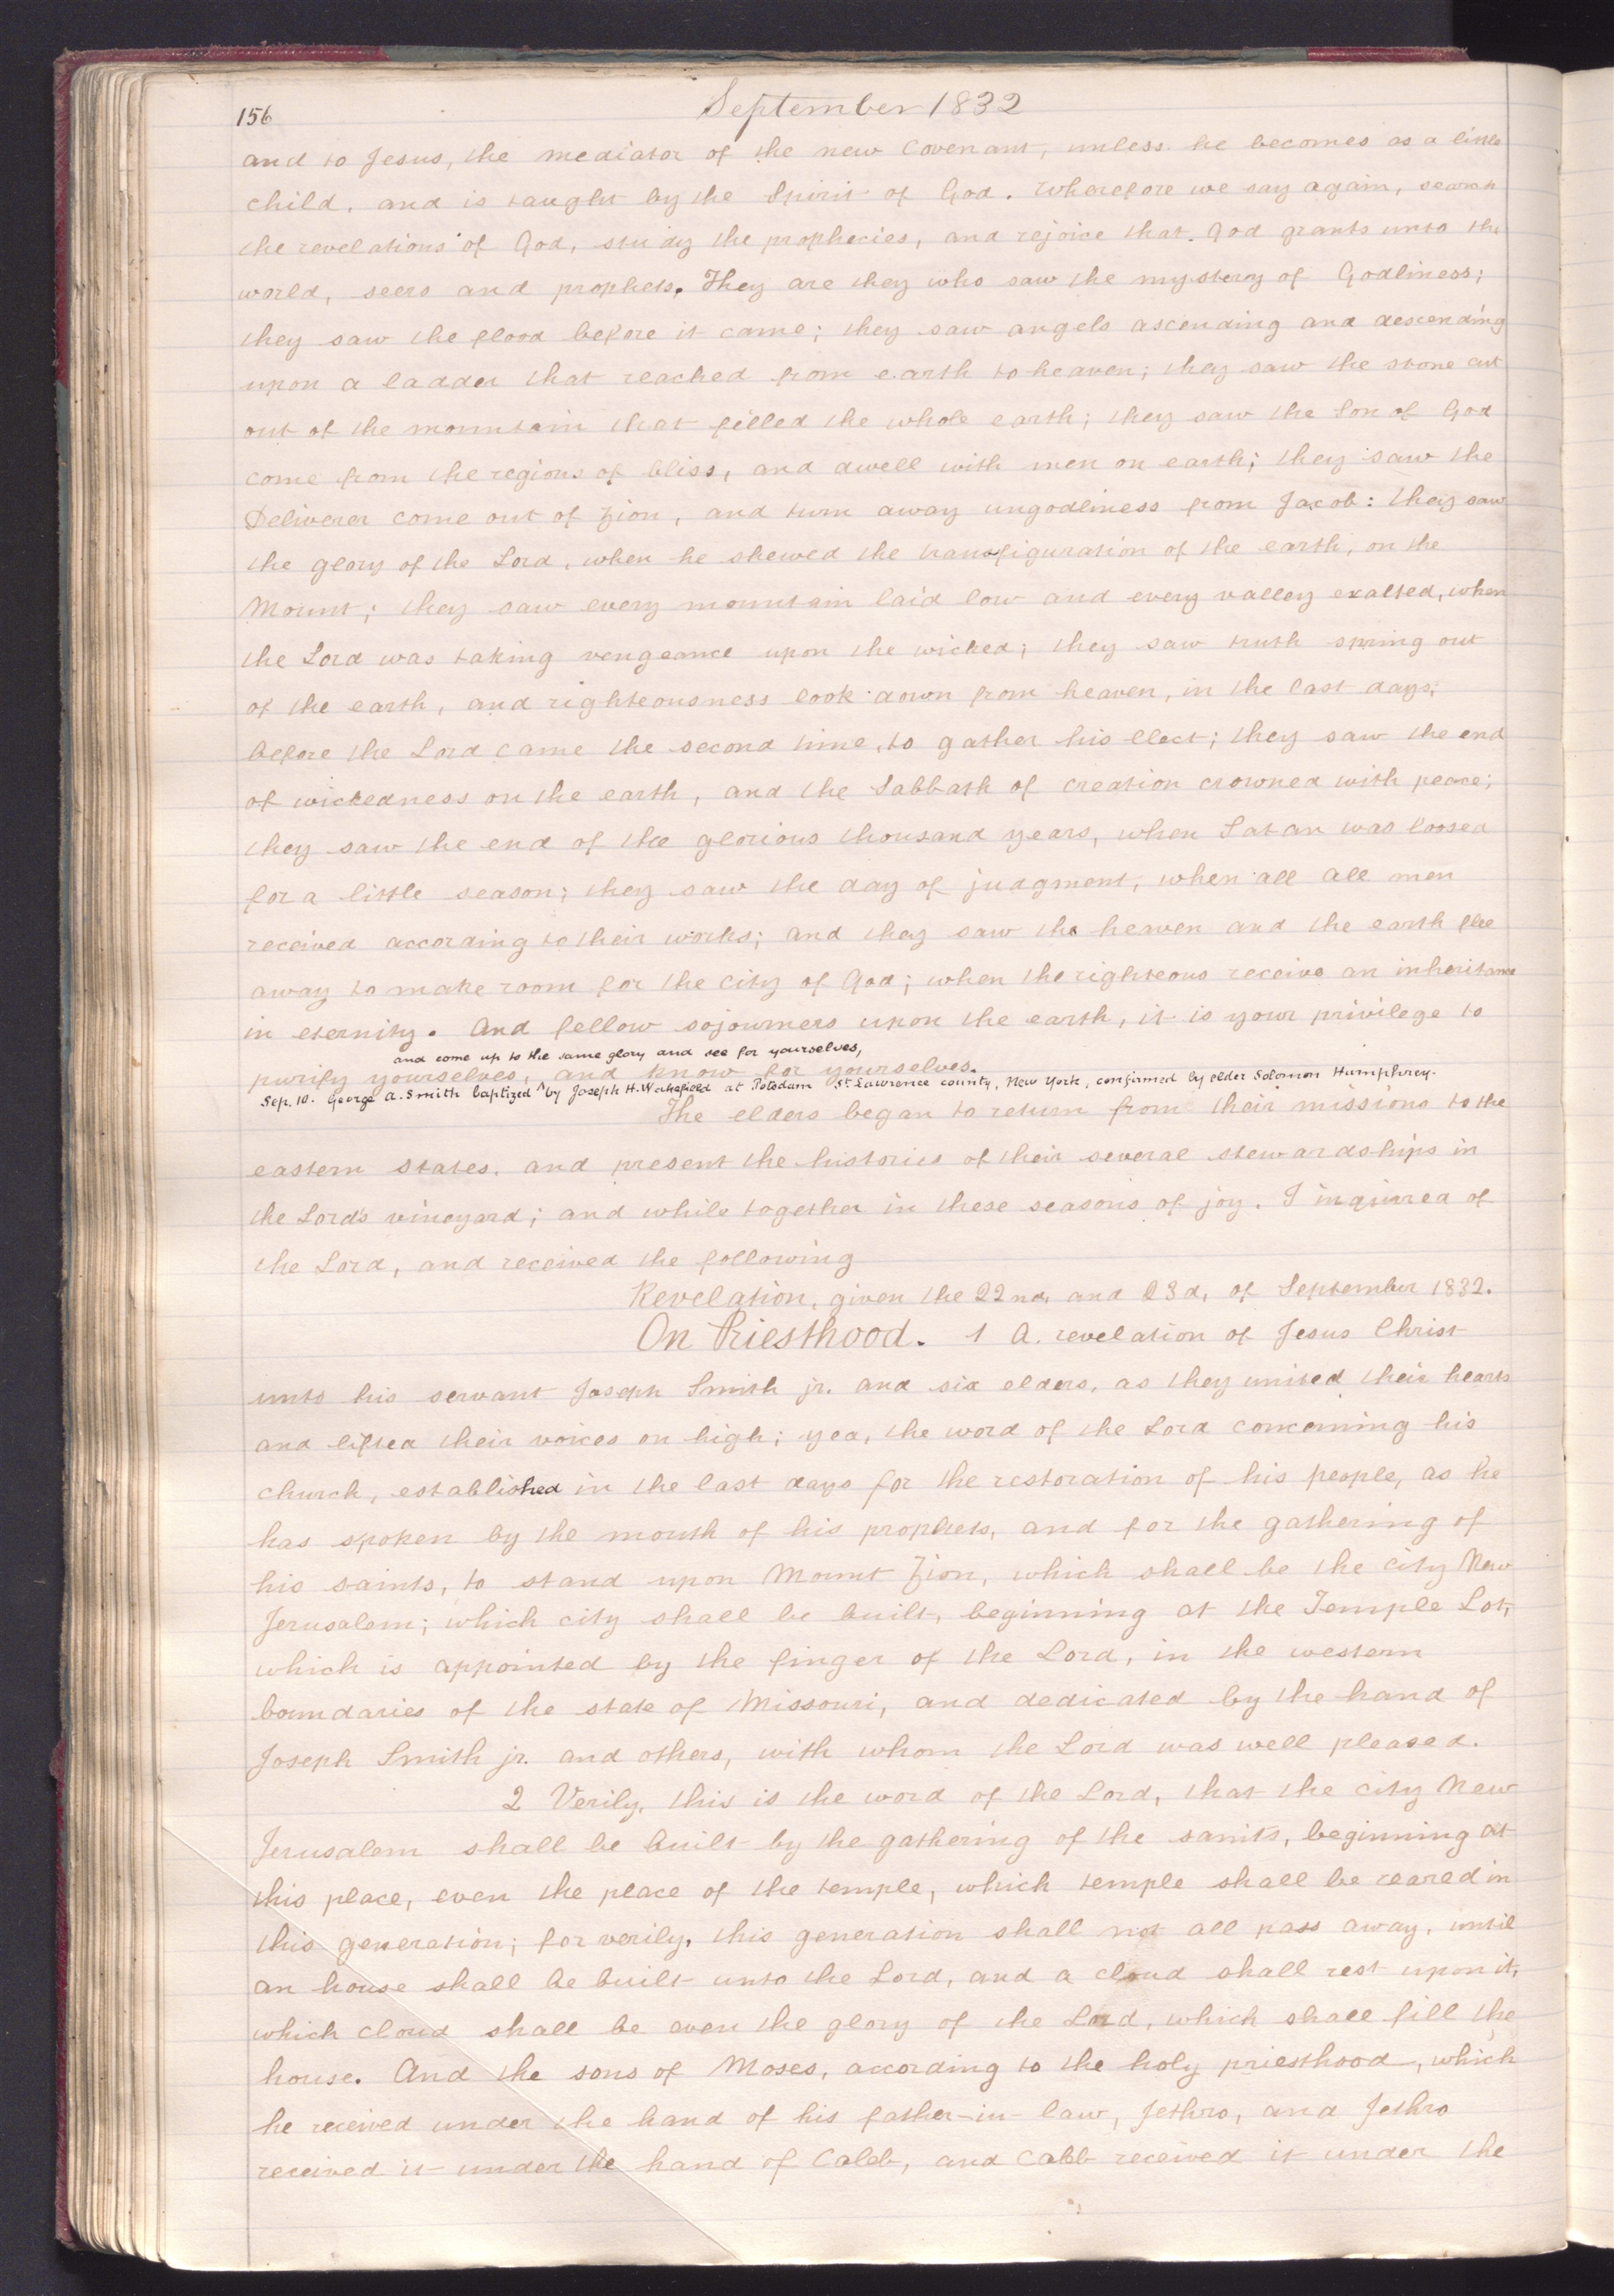 156
September 1832
and to Jesus, the mediator of the new Covenant, unless he becomes as a little
child, and is taught by the Spirit of God. Wherefore we say again, search
the revelations of God, study the prophecies, and rejoice that God grants unto the
world, seers and prophets. They are they who saw the mystery of Godliness;
they saw the flood before it came; they saw angels ascending and descending
upon a ladder that reached from earth to heaven; they saw the stone cut
out of the mountain that filled the whole earth; they saw the Son of God
come from the regions of bliss, and dwell with men on earth; they saw the
Deliverer come out of Zion, and turn away ungodliness from Jacob: they saw
the glory of the Lord, when he shewed the transfiguration of the earth, on the
Mount; they saw every mountain laid low and every valley exalted, when
the Lord was taking vengeance upon the wicked; they saw truth spring out
of the earth, and righteousness look down from heaven, in the last days;
before the Lord came the second time, to gather his elect; they saw the end
of wickedness on the earth, and the Sabbath of creation crowned with peace;
they saw the end of the glorious thousand years, when Satan was loosed
for a little season; they saw the day of judgment, when all all men
received according to their works; and they saw the heaven and the earth flee
away to make room for the city of God; when the righteous receive an inheritance
in eternity. And fellow sojourners upon the earth, it is your privilege to
and come up to the same glory and see for yourselves,
purify yourselves, ^ and know for yourselves.
Sep. 10. George A. Smith baptized by Joseph H. Wakefield at Potsdam St. Lawrence county, New York, confirmed by elder Solomon Humphrey.
The elders began to return from their missions to the
eastern states, and present the histories of their several stewardships in
the Lord's vineyard; and while together in these seasons of joy, I inquired of
the Lord, and received the following
Revelation, given the 22nd, and 23d, of September 1832.
On Priesthood. 1 A. revelation of Jesus Christ
unto his servant Joseph Smith jr. and six elders, as they united their hearts
and lifted their voices on high; yea, the word of the Lord concerning his
church, established in the last days for the restoration of his people, as he
has spoken by the mouth of his prophets, and for the gathering of
his saints, to stand upon Mount Zion, which shall be the city New
Jerusalem; which city shall be built, beginning at the Temple Lot,
which is appointed by the finger of the Lord, in the western
boundaries of the state of Missouri, and dedicated by the hand of
Joseph Smith jr. and others, with whom the Lord was well pleased.
2 Verily, this is the word of the Lord, that the city New
Jerusalem shall be built by the gathering of the saints, beginning at
this place, even the place of the temple, which temple shall be reared in
this generation; for verily, this generation shall not all pass away, until
an house shall be built unto the Lord, and a cloud shall rest upon it,
which cloud shall be even the glory of the Lord, which shall fill the
house. And the sons of Moses, according to the holy priesthood, which
he received under the hand of his father-in-law, Jethro, and Jethro
received it under the hand of Caleb, and Caleb received it under the